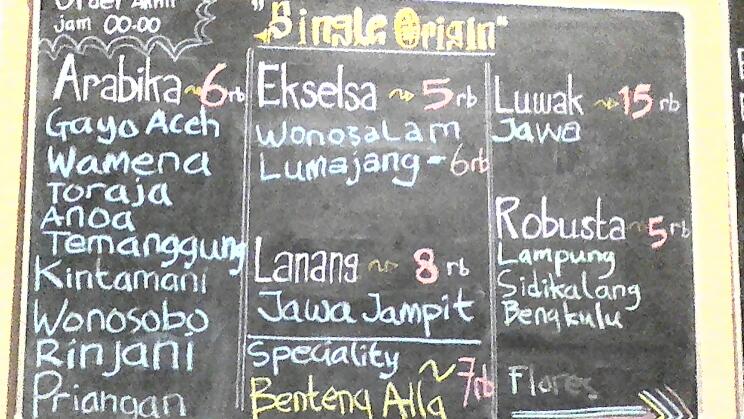 Order Akhir
jam 00.00
"Single Origin"
Arabika ~ 6 rb
Gayo Aceh
Wamena
Toraja
Anoa
Temanggung
Kintamani
Wonosobo
Rinjani
Priangan
Ekselsa ~ 5 rb
Wonosalam
Lumajang - 6rb
Lanang ~ 8 rb
Jawa Jampit
Speciality ~ 7rb
Benteng Alla
Luwak ~ 15 rb
Jawa
Robusta ~ 5 rb
Lampung
Sidikalang
Bengkulu
Flores